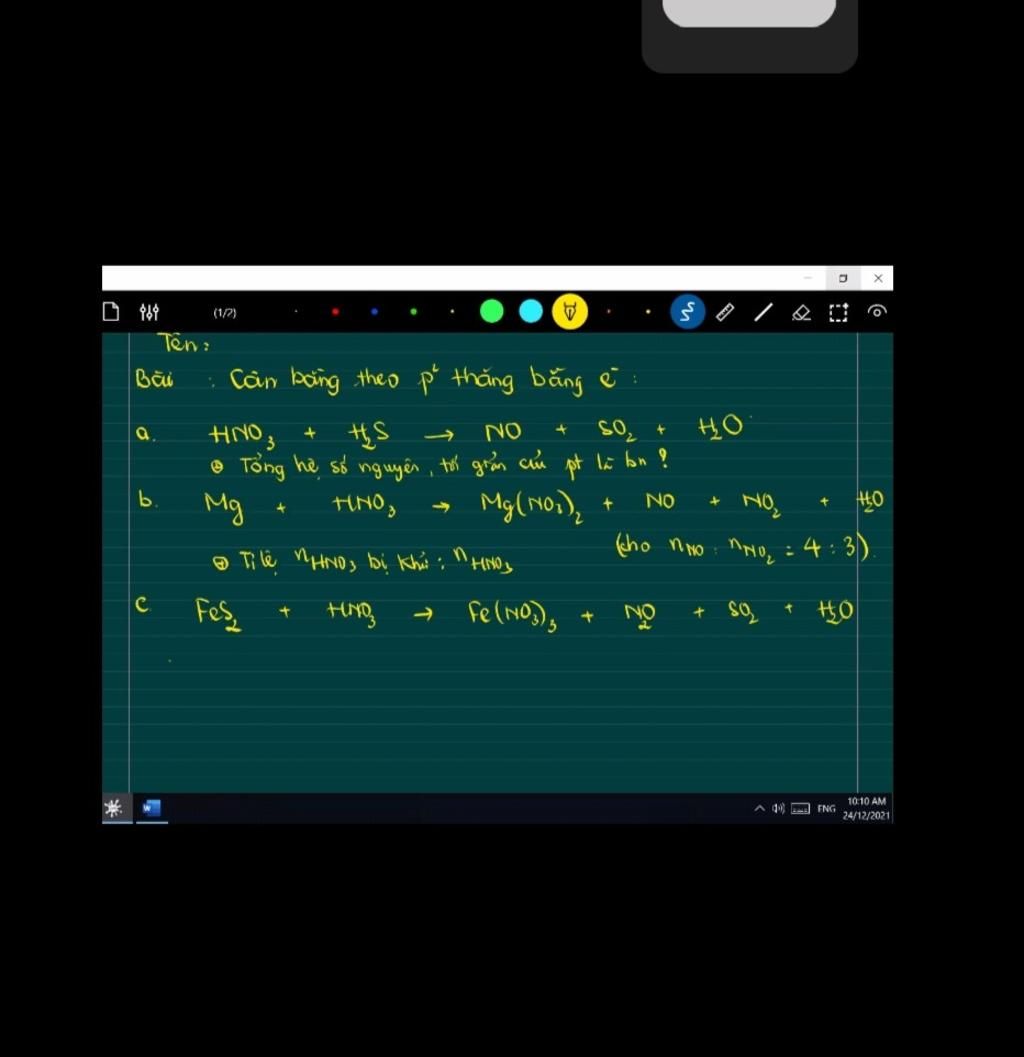 (1/2)
Tên:
Bài : Cân bằng theo p² thăng bằng e⁻ :
a. HNO₃ + H₂S → NO + SO₂ + H₂O
⊕ Tổng hệ số nguyên, tối giản của pt là bn ?
b. Mg + HNO₃ → Mg(NO₃)₂ + NO + NO₂ + H₂O
(cho nNO : nNO₂ = 4 : 3).
⊕ Tỉ lệ nHNO₃ bị khử : nHNO₃
c. FeS₂ + HNO₃ → Fe(NO₃)₃ + NO₂ + SO₂ + H₂O
ENG
10:10 AM
24/12/2021